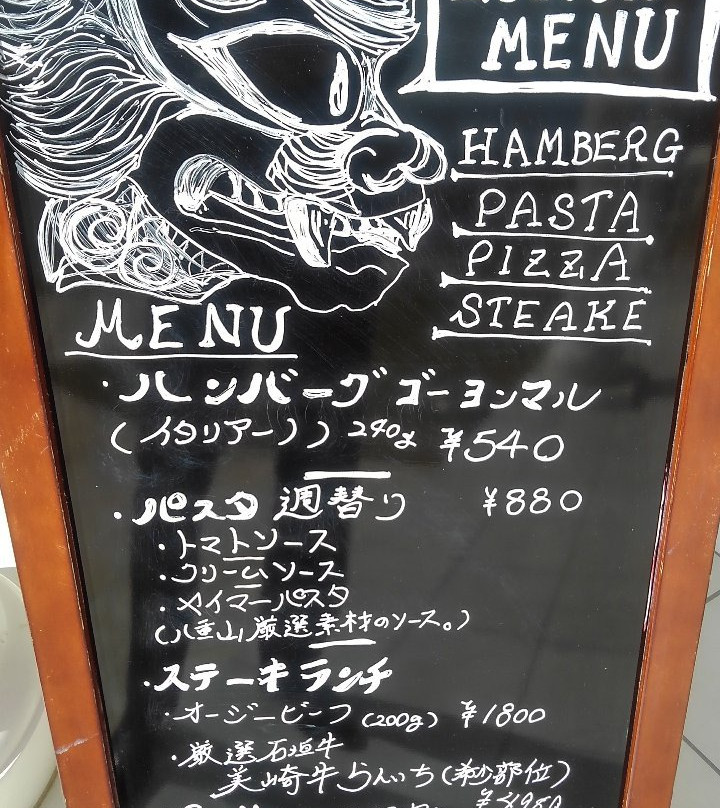 MENU
HAMBERG
PASTA
PIZZA
STEAKE
MENU
・ハンバーグ ゴーヨンマル
(イタリアーノ) 240g ¥540
・パスタ 週替り ¥880
・トマトソース
・クリームソース
・メイマーパスタ
(八重山厳選素材のソース。)
・ステーキランチ
・オージービーフ (200g) ¥1800
・厳選石垣牛
美崎牛らんいち (希少部位)